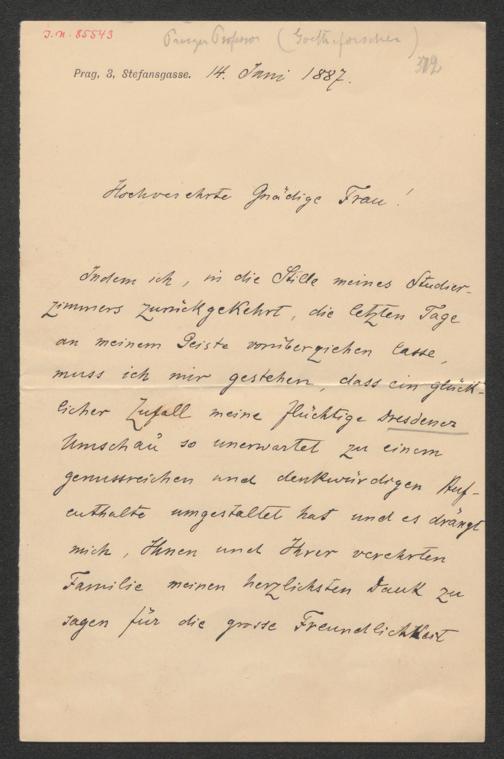 J.N. 85543
Prager Professor (Goetheforscher)
312
Prag, 3, Stefansgasse. 14. Juni 1887.
Hochverehrte Gnädige Frau!
Indem ich, in die Stille meines Studier-
zimmers zurückgekehrt, die letzten Tage
an meinem Geiste vorüberziehen lasse,
muss ich mir gestehen, dass ein glück-
licher Zufall meine flüchtige Dresdener
Umschau so unerwartet zu einem
genussreichen und denkwürdigen Auf-
enthalte umgestaltet hat und es drängt
mich, Ihnen und Ihrer verehrten
Familie meinen herzlichsten Dank zu
sagen für die grosse Freundlichkeit